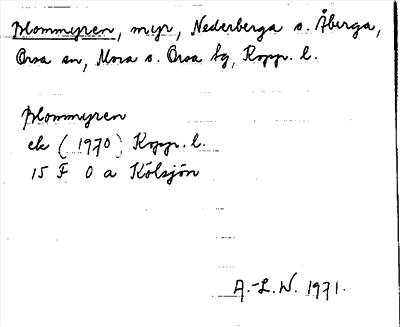 Blommyren, myr, Nederberga o. Åberga,
Orsa sn, Mora o. Orsa tg, Kopp. l.
Blommyren
ek (1970) Kopp. l.
15 F 0 a Kölsjön
A.-L. W. 1971.